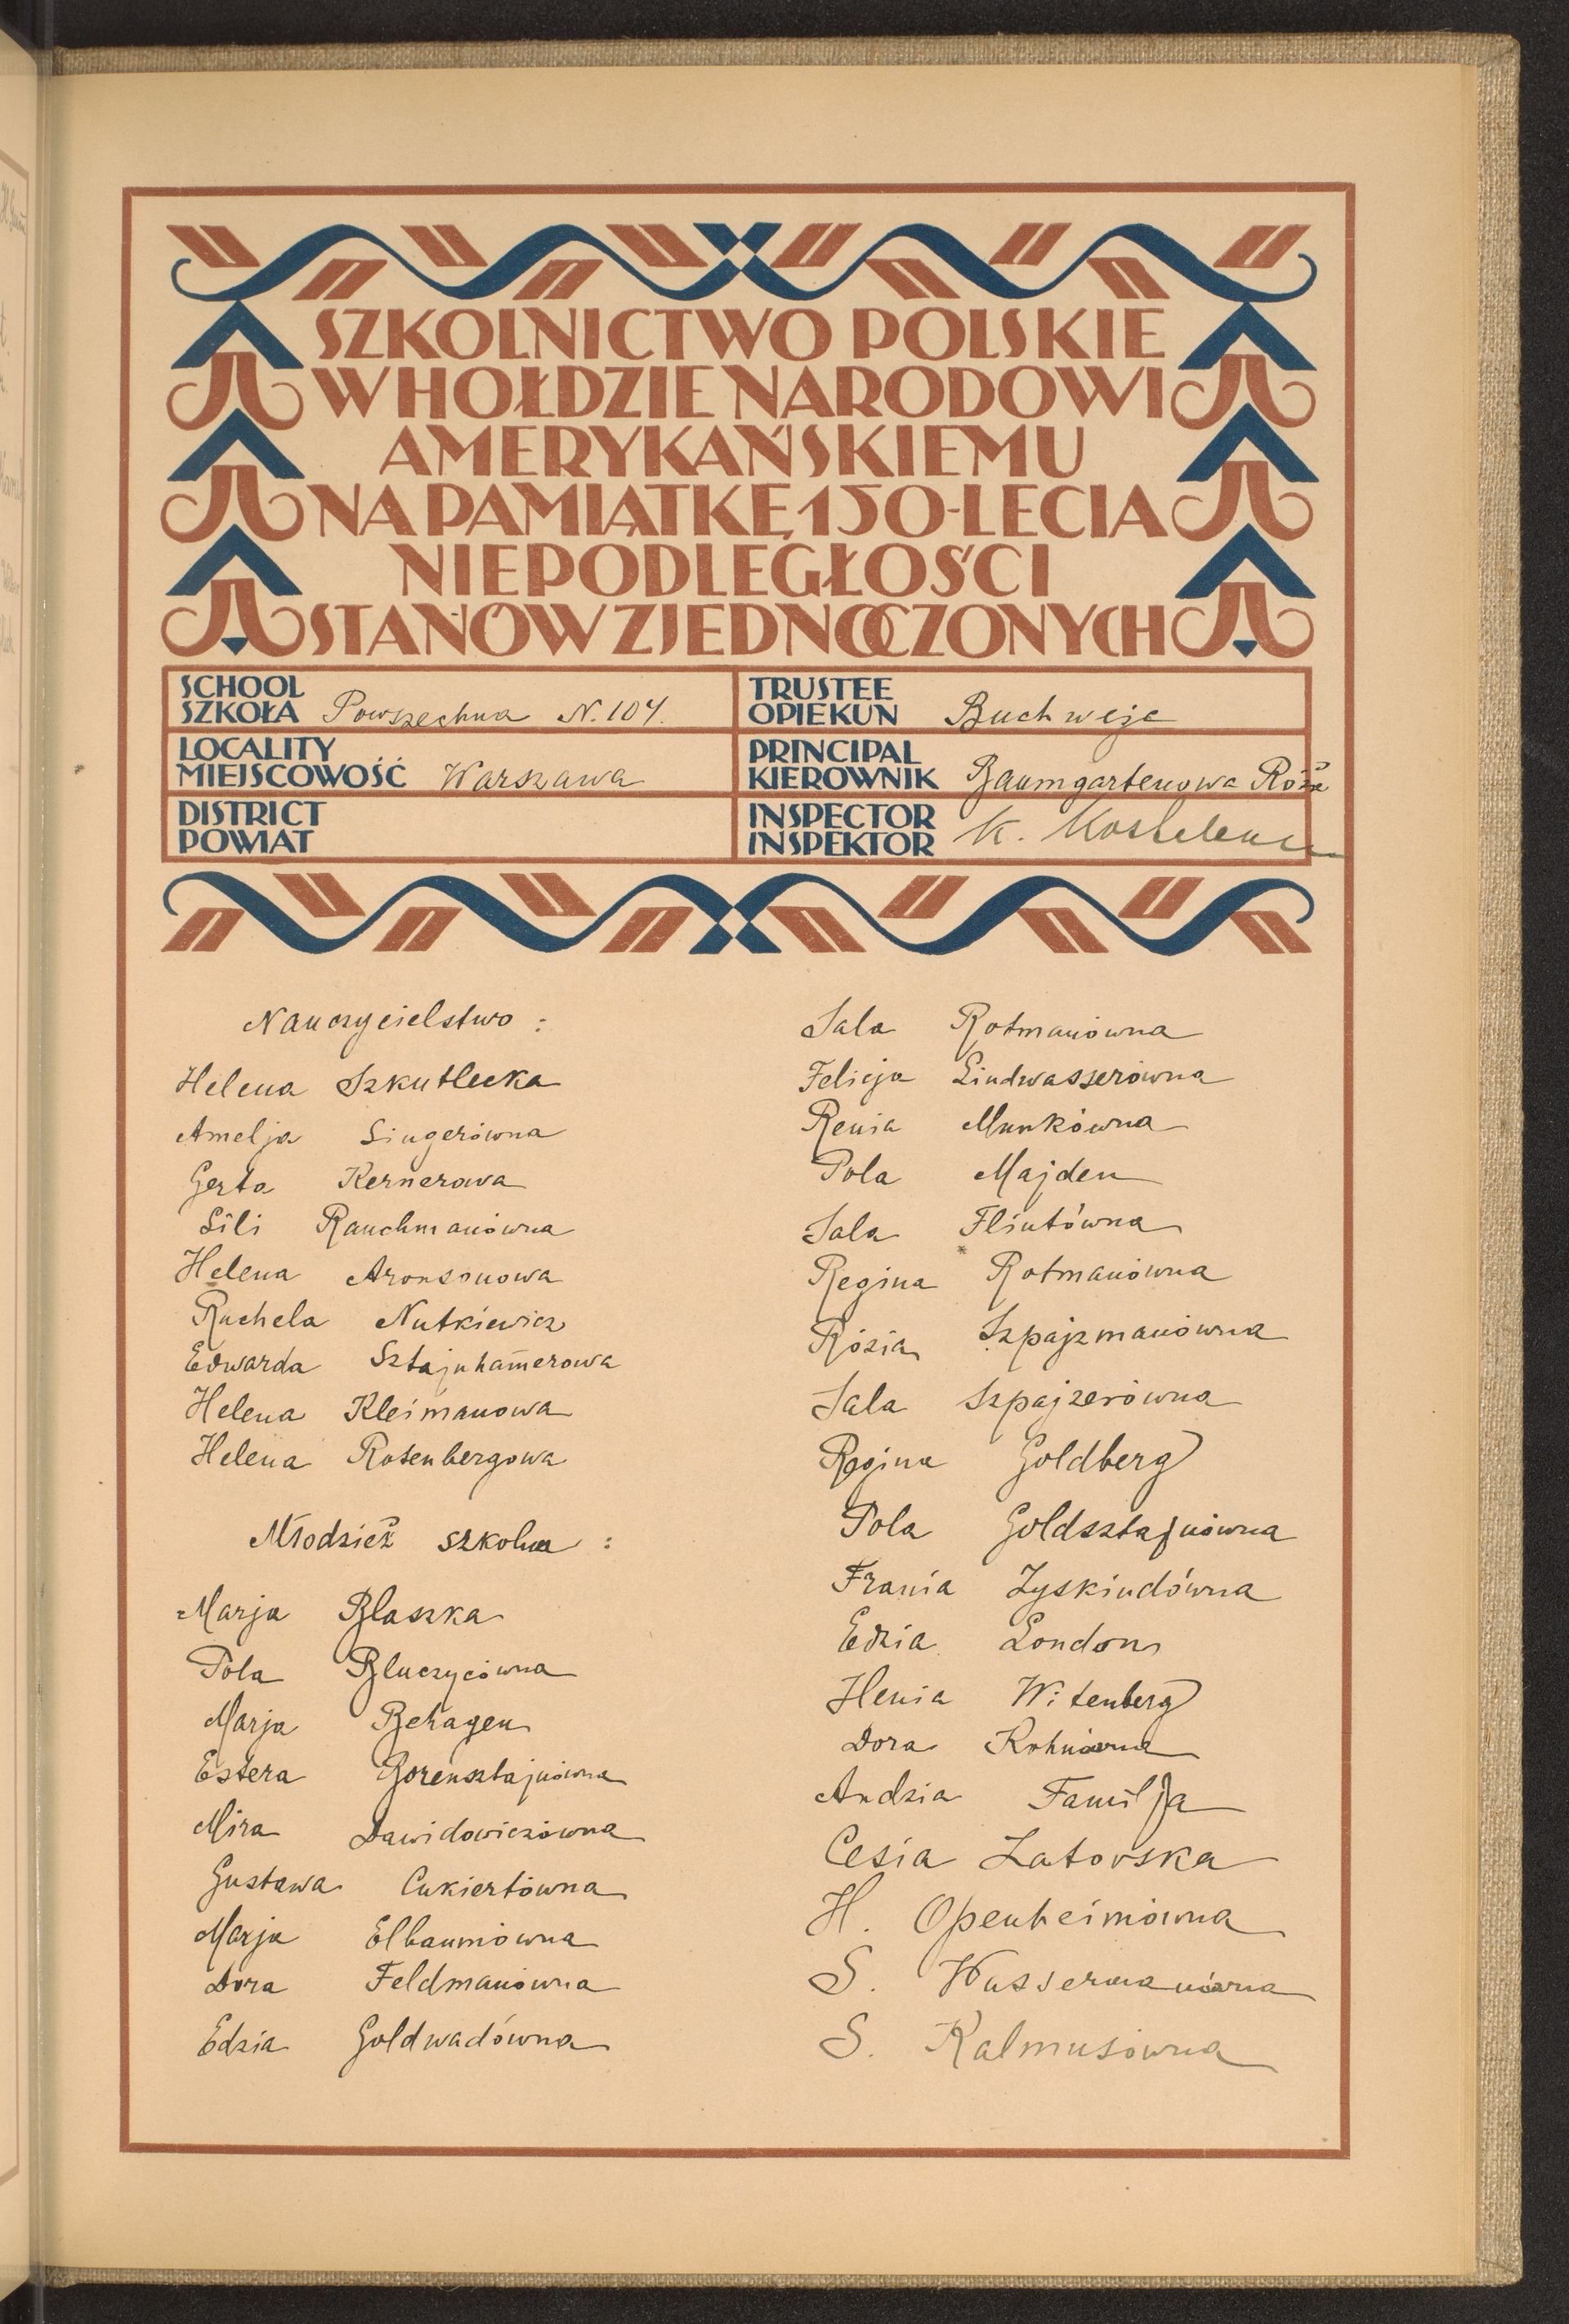 SZKOLNICTWO POLSKIE
W HOŁDZIE NARODOWI
AMERYKAŃSKIEMU
NA PAMIĄTKĘ 150-LECIA
NIEPODLEGŁOŚCI
STANÓW ZJEDNOCZONYCH
SCHOOL
SZKOŁA Powszechna N. 104.
TRUSTEE
OPIEKUN Buchweje
LOCALITY
MIEJSCOWOŚĆ Warszawa
PRINCIPAL
KIEROWNIK Baumgartenowa Róża
DISTRICT
POWIAT
INSPECTOR
INSPEKTOR K.
Nauczycielstwo :
Helena Szkutlecka
Amelja Singerówna
Gerta Kernerowa
Lili Rauchmanówna
Helena Aronsonowa
Ruchela Nutkiewicz
Edwarda Sztajnhamerowa
Helena Kleimanowa
Helena Rosenbergowa
Młodzież szkolna :
Marja Blaszka
Pola Bluczycówna
Marja Behagen
Estera Borensztajnówna
Mira Dawidowiczówna
Gustawa Cukiertówna
Marja Elbaumówna
Dora Feldmanówna
Edzia Goldwadówna
Sala Rotmanówna
Felicja Lindwasserówna
Renia Munkówna
Pola Majden
Sala Flintówna
Regina Rotmanówna
Rózia Szpajzmanówna
Sala Szpajzerówna
Regina Goldberg
Pola Goldsztajnówna
Frania Zyskindówna
Edzia London
Henia Witenberg
Dora Kohnówna
Andzia Familja
Cesia Zatorska
H. Openheimówna
S. Wassermanówna
S. Kalmusówna